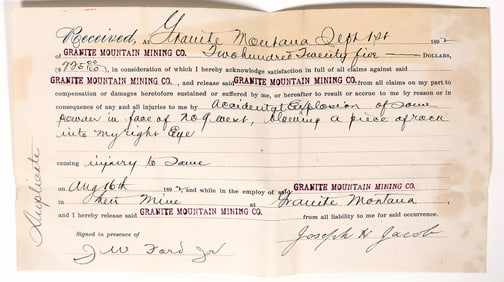 Received, at Granite Montana Sept 1st 1892
of GRANITE MOUNTAIN MINING CO. Two hundred Twenty five DOLLARS,
($225.00), in consideration of which I hereby acknowledge satisfaction in full of all claims against said
GRANITE MOUNTAIN MINING CO., and release said GRANITE MOUNTAIN MINING CO. from all claims on my part to
compensation or damages heretofore sustained or suffered by me, or hereafter to result or accrue to me by reason or in
consequence of any and all injuries to me by Accidental Explosion of Some
powder in face of no 9 west, blowing a piece of rock
into my right Eye
causing injury to Same
on Aug 16th 1892, and while in the employ of said GRANITE MOUNTAIN MINING CO.
in their Mine at Granite Montana,
and I hereby release said GRANITE MOUNTAIN MINING CO. from all liability to me for said occurrence.
Signed in presence of
J W Ford Jr
Joseph H Jacob
Duplicate